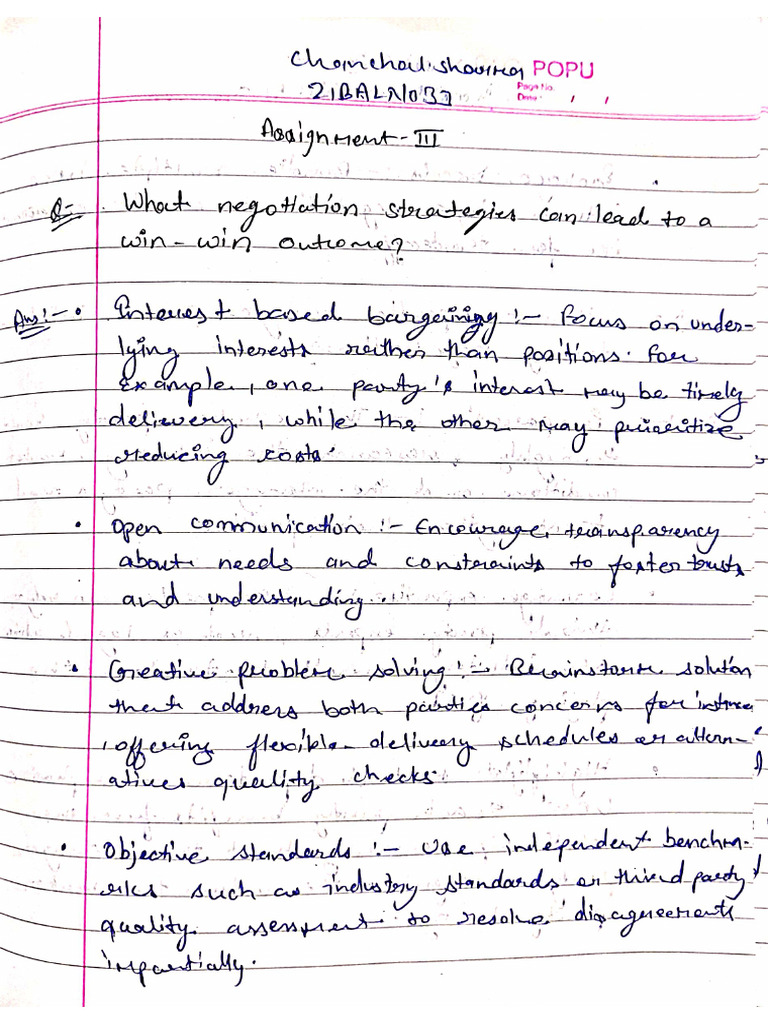 Chanchal sharma POPU
21BALN037 Page No.
Date: / /
Assignment - III
Q- What negotiation strategies can lead to a
win-win outcome?
Ans:- • Interest based bargaining :- Focus on under-
lying interests rather than positions. For
Example, one party's interest may be timely
delivery, while the other may prioritize
reducing costs.
• Open communication :- Encourage transparency
about needs and constraints to foster trust
and understanding.
• Creative problem solving :- Brainstorm solution
that address both parties concerns for instance
, offering flexible delivery schedules or altern-
atives quality checks.
• Objective standards :- Use independent benchma-
rks such as industry standards or third party
quality assessment to resolve disagreements
impartially.